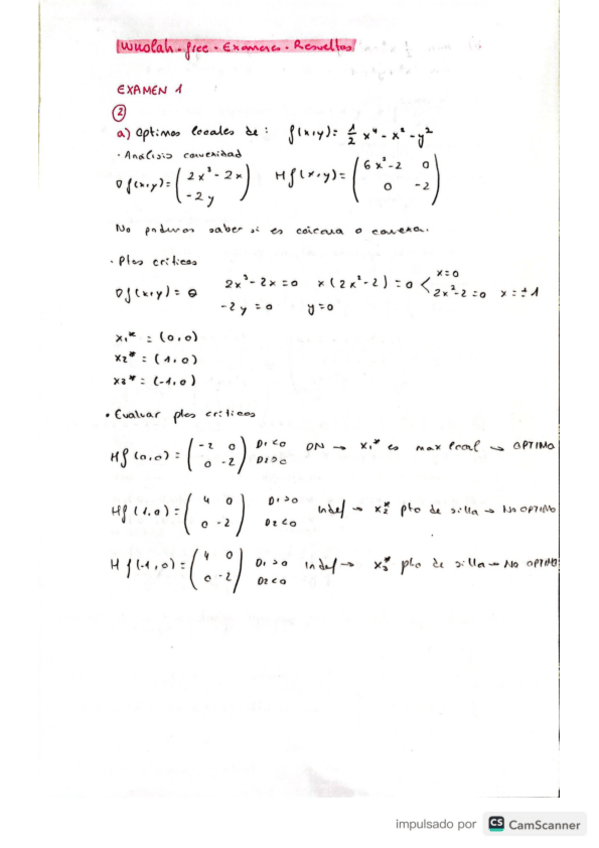 Wuolah - free - Examenes - Resueltos
EXAMEN 1
②
a) Optimos locales de : f(x,y) = 1/2 x⁴ - x² - y²
· Análisis convexidad
∇f(x,y) = (2x³ - 2x / -2y) Hf(x,y) = (6x² - 2 0 / 0 -2)
No podemos saber si es cóncava o convexa.
· Ptos críticos
∇f(x,y) = θ 2x³ - 2x = 0 x(2x² - 2) = 0 < x = 0
2x² - 2 = 0 x = ± 1
-2y = 0 y = 0
x₁* = (0,0)
x₂* = (1,0)
x₃* = (-1,0)
• Evaluar ptos críticos
Hf(0,0) = (-2 0 / 0 -2) D₁<0 D₂>0 DN → x₁* es max local → OPTIMO
Hf(1,0) = (4 0 / 0 -2) D₁>0 D₂<0 Indef → x₂* pto de silla → NO OPTIMO
Hf(-1,0) = (4 0 / 0 -2) D₁>0 D₂<0 Indef → x₃* pto de silla → NO OPTIMO
impulsado por CS CamScanner